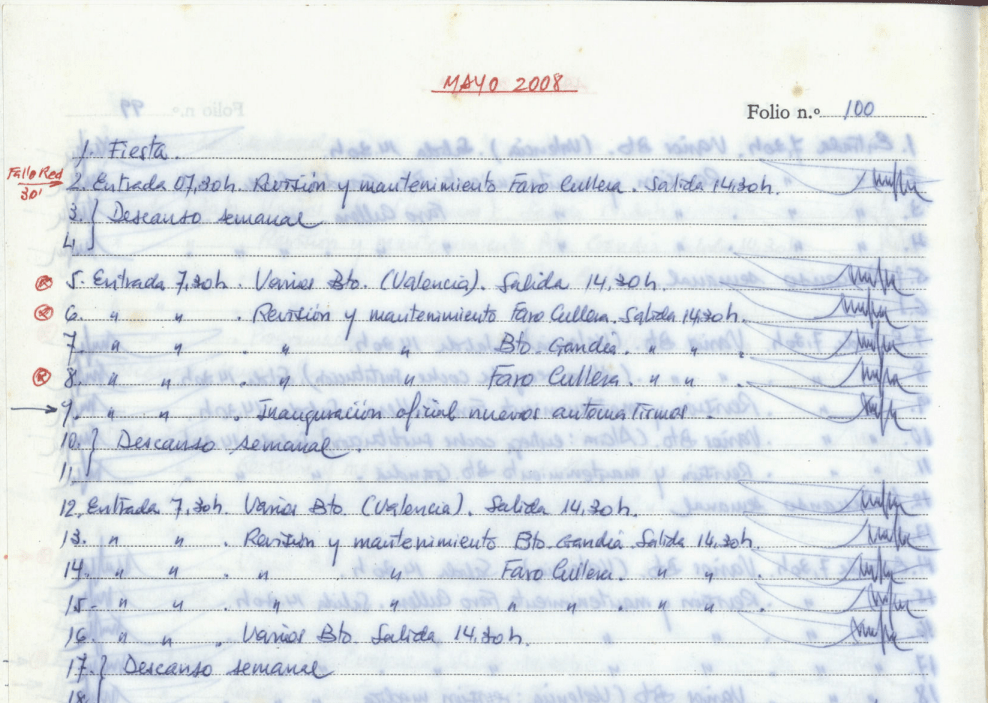 MAYO 2008
Folio n.º 100
1. Fiesta.
Fallo Red 30'
2. Entrada 07,30h. Revisión y mantenimiento Faro Cullera. Salida 14,30h.
3. } Descanso semanal
4.
Ⓡ 5. Entrada 7,30h. Varios Bto. (Valencia). Salida 14,30h.
Ⓡ 6. " " . Revisión y mantenimiento Faro Cullera. Salida 14,30h.
7. " " . " " Bto. Gandía. " " .
Ⓡ 8. " " . " " Faro Cullera. " " .
→ 9. " " . Inauguración oficial nuevos
10. } Descanso semanal.
11.
12. Entrada 7,30h. Varios Bto (Valencia). Salida 14,30h.
13. " " . Revisión y mantenimiento Bto. Gandía. Salida 14,30h.
14. " " . " " Faro Cullera. " " .
15. " " . " " " " . " " .
16. " " . Varios Bto. Salida 14,30h.
17. } Descanso semanal
18.